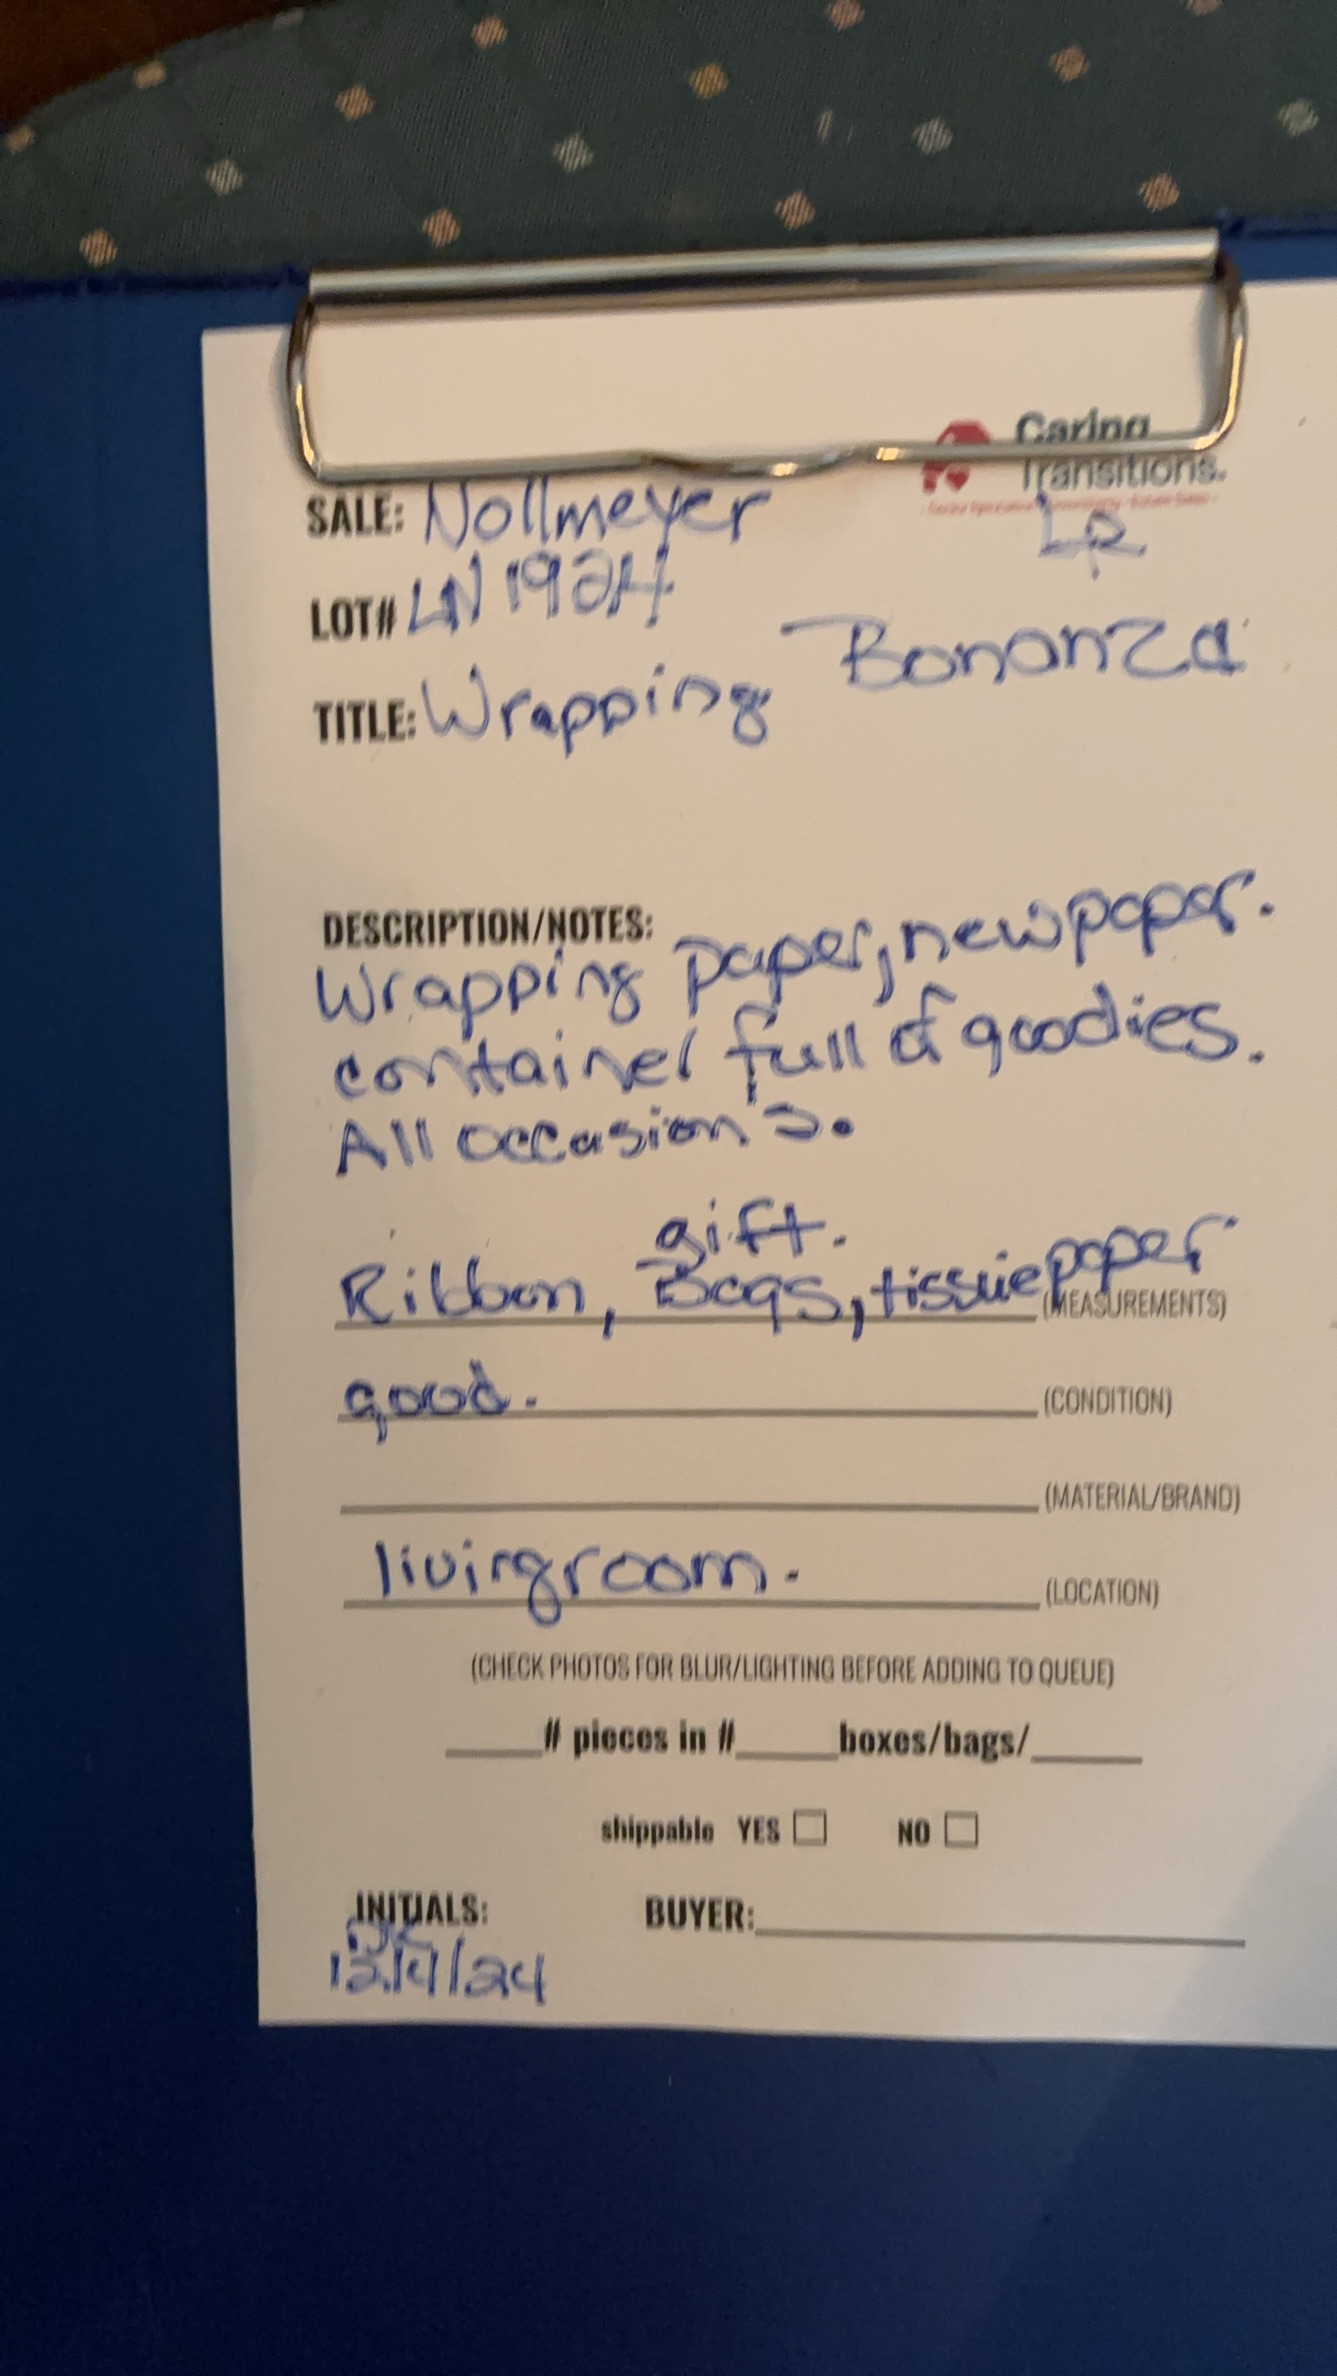 Caring
Transitions.
SALE: Nollmeyer
LR
LOT# LN 1924
TITLE: Wrapping Bonanza
DESCRIPTION/NOTES:
Wrapping paper, newpaper.
container full of goodies.
All occasion's.
gift.
Ribbon, Bags, tissue paper (MEASUREMENTS)
good. (CONDITION)
(MATERIAL/BRAND)
livingroom. (LOCATION)
(CHECK PHOTOS FOR BLUR/LIGHTING BEFORE ADDING TO QUEUE)
# pieces in # boxes/bags/
shippable YES NO
INITIALS: BUYER:
/24